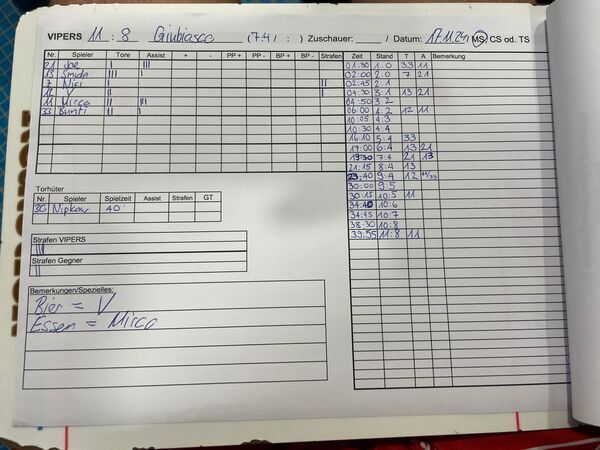 VIPERS 11 : 8 Giubiasco (7.4 / : ) Zuschauer: / Datum: 17.11.24 MS, CS od. TS
Nr. Spieler Tore Assist + - PP + PP - BP + BP - Strafen
21 Joe I III
13 Smida III I
7 Nici I II
12 V II I
11 Mirco II III
33 Bunti II
Zeit Stand T A Bemerkung
01:30 1:0 33 11
02:00 2:0 7 21
02:45 2:1
04:30 3:1 13 21
04:50 3:2
06:00 4:2 12 11
10:05 4:3
10:30 4:4
16:10 5:4 33
17:00 6:4 13 21
19:30 7:4 21 13
21:15 8:4 13
23:40 9:4 12 11/33
30:00 9:5
30:15 10:5 11
34:40 10:6
34:45 10:7
38:30 10:8
39:55 11:8 11
Torhüter
Nr. Spieler Spielzeit Assist Strafen GT
30 Nipkow 40'
Strafen VIPERS
III
Strafen Gegner
II
Bemerkungen/Spezielles:
Bier = V
Essen = Mirco